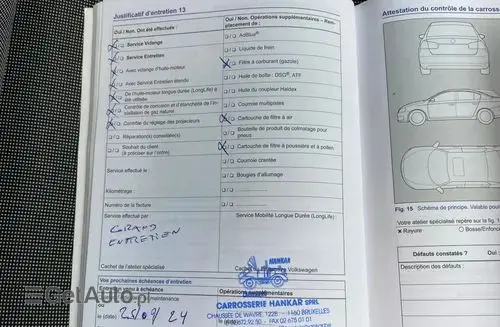 Justificatif d'entretien 13
Oui / Non. Ont été effectués :
Service Vidange
Service Entretien
Avec vidange d'huile-moteur
Avec Service Entretien étendu
De l'huile-moteur longue durée (LongLife) a
été utilisée
Contrôle de corrosion et d'étanchéité de l'in-
stallation de gaz naturel
Contrôle du réglage des projecteurs
Réparation(s) conseillée(s)
Souhait du client
(à préciser sur l'ordre)
Service effectué le :
Kilométrage :
Numéro de la facture :
Service effectué par :
GRAND
ENTRETIEN
Cachet de l'atelier spécialisé
Vos prochaines échéances d'entretien
Entretien à échéance
(le (date)
25/09/24
Oui / Non. Opérations supplémentaires – Rem-
placement de :
AdBlue®
Liquide de frein
Filtre à carburant (gazole)
Huile de boîte : DSG®, ATF
Huile du coupleur Haldex
Courroie multipistes
Cartouche de filtre à air
Bouteille de produit de colmatage pour
pneus
Cartouche de filtre à poussières et à pollen
Courroie crantée
Bougies d'allumage
Service Mobilité Longue Durée (LongLife) :
HANKAR
Volkswagen
Opérations supplémentaires
CARROSSERIE HANKAR SPRL
CHAUSSÉE DE WAVRE, 122B - 1160 BRUXELLES
02.672.92.90 - FAX 02 675 01 01
(le (date)
Attestation du contrôle de la carross
Fig. 15 Schéma de principe. Valable pour
Votre atelier spécialisé repère sur la fig.
Rayure
Bosse/Enfonc
Défauts constatés ?
Oui
Description des défauts :
GetAuto.pl